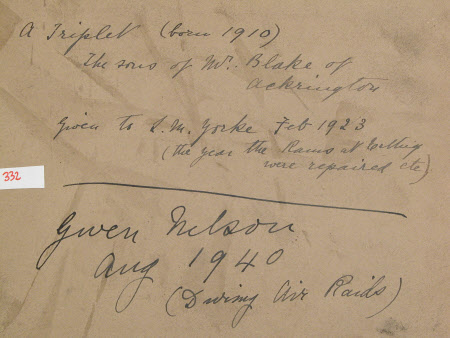 A Triplet (born 1910)
The sons of Mr. Blake of
Ackrington
Given to S. M. Yorke Feb 1923
(the year the Rams at
were repaired etc)
332
Gwen Nelson
Aug 1940
(During Air Raids)